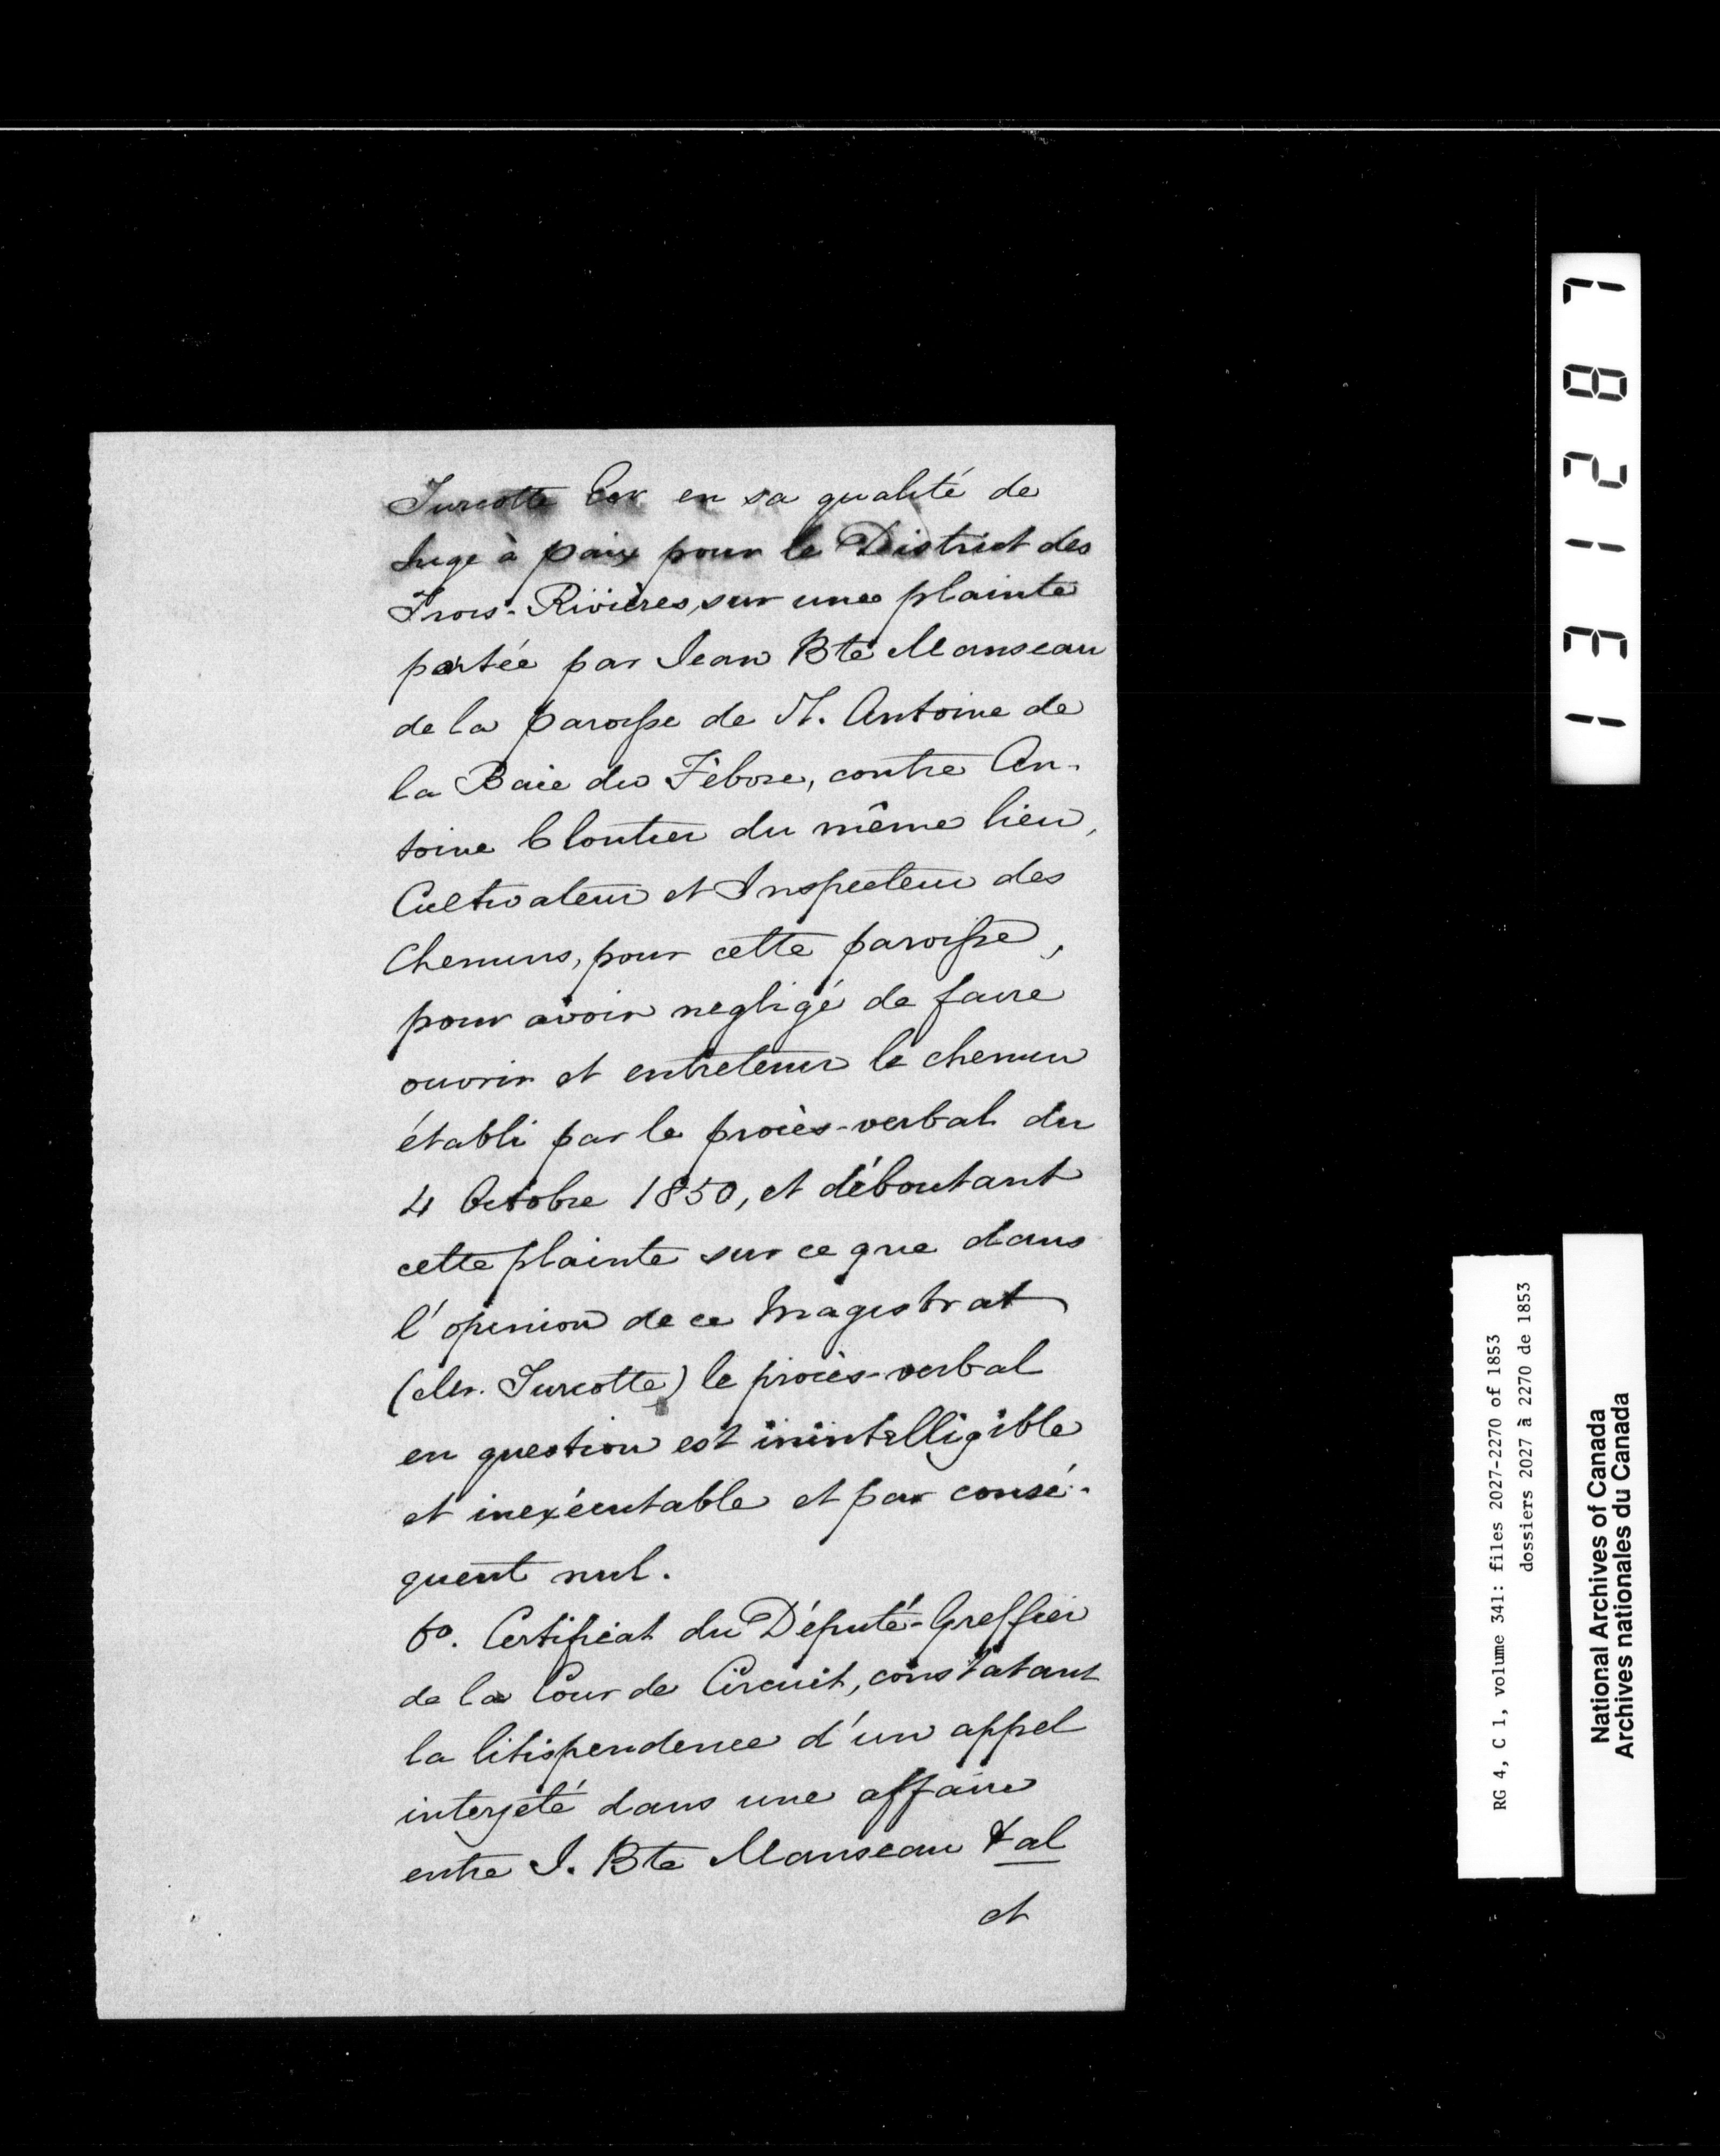 Turcotte Ecr en sa qualité de
Juge à paix pour le District des
Trois-Rivières, sur une plainte
portée par Jean Bte Manseau
de la paroisse de St. Antoine de
la Baie du Febvre, contre An-
toine Cloutier du même lieu,
Cultivateur et Inspecteur des
Chemins, pour cette paroisse,
pour avoir negligé de faire
ouvrir et entretenir le chemin
établi par le procès-verbal du
4 Octobre 1850, et déboutant
cette plainte sur ce que dans
l'opinion de ce Magistrat
(Mr. Turcotte) le procès-verbal
en question est inintelligible
et inexécutable et par consé-
quent nul.
6o. Certificat du Député-Greffier
de la Cour de Circuit, constatant
la litispendence d'un appel
interjeté dans une affaire
entre J. Bte Manseau & al
et
131287
RG 4, C 1, volume 341: files 2027-2270 of 1853
dossiers 2027 à 2270 de 1853
National Archives of Canada
Archives nationales du Canada